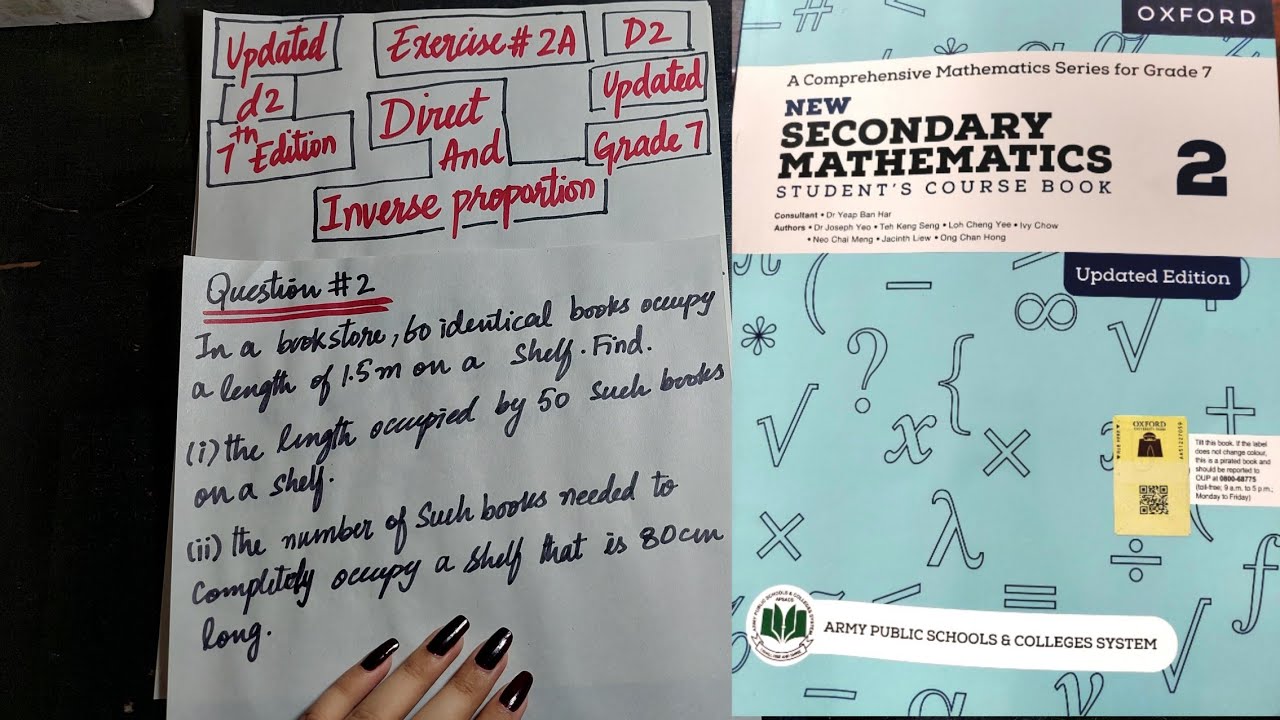 Updated
d2
7th Edition
Exercise # 2A
Direct
And
Inverse proportion
D2
Updated
Grade 7
Question #2
In a bookstore, 60 identical books occupy
a length of 1.5m on a shelf. Find.
(i) the length occupied by 50 such books
on a shelf.
(ii) the number of such books needed to
completely occupy a shelf that is 80cm
long.
OXFORD
A Comprehensive Mathematics Series for Grade 7
NEW
SECONDARY
MATHEMATICS
2
STUDENT'S COURSE BOOK
Consultant • Dr Yeap Ban Har
Authors • Dr Joseph Yeo • Teh Keng Seng • Loh Cheng Yee • Ivy Chow
• Neo Chai Meng • Jacinth Liew • Ong Chan Hong
Updated Edition
OXFORD
Tilt this book. If the label
does not change colour,
this is a pirated book and
should be reported to
OUP at 0800-68775
(toll-free; 9 a.m. to 5 p.m.;
Monday to Friday)
ARMY PUBLIC SCHOOLS & COLLEGES SYSTEM
APSACS
ARMY PUBLIC SCHOOLS & COLLEGES SYSTEM